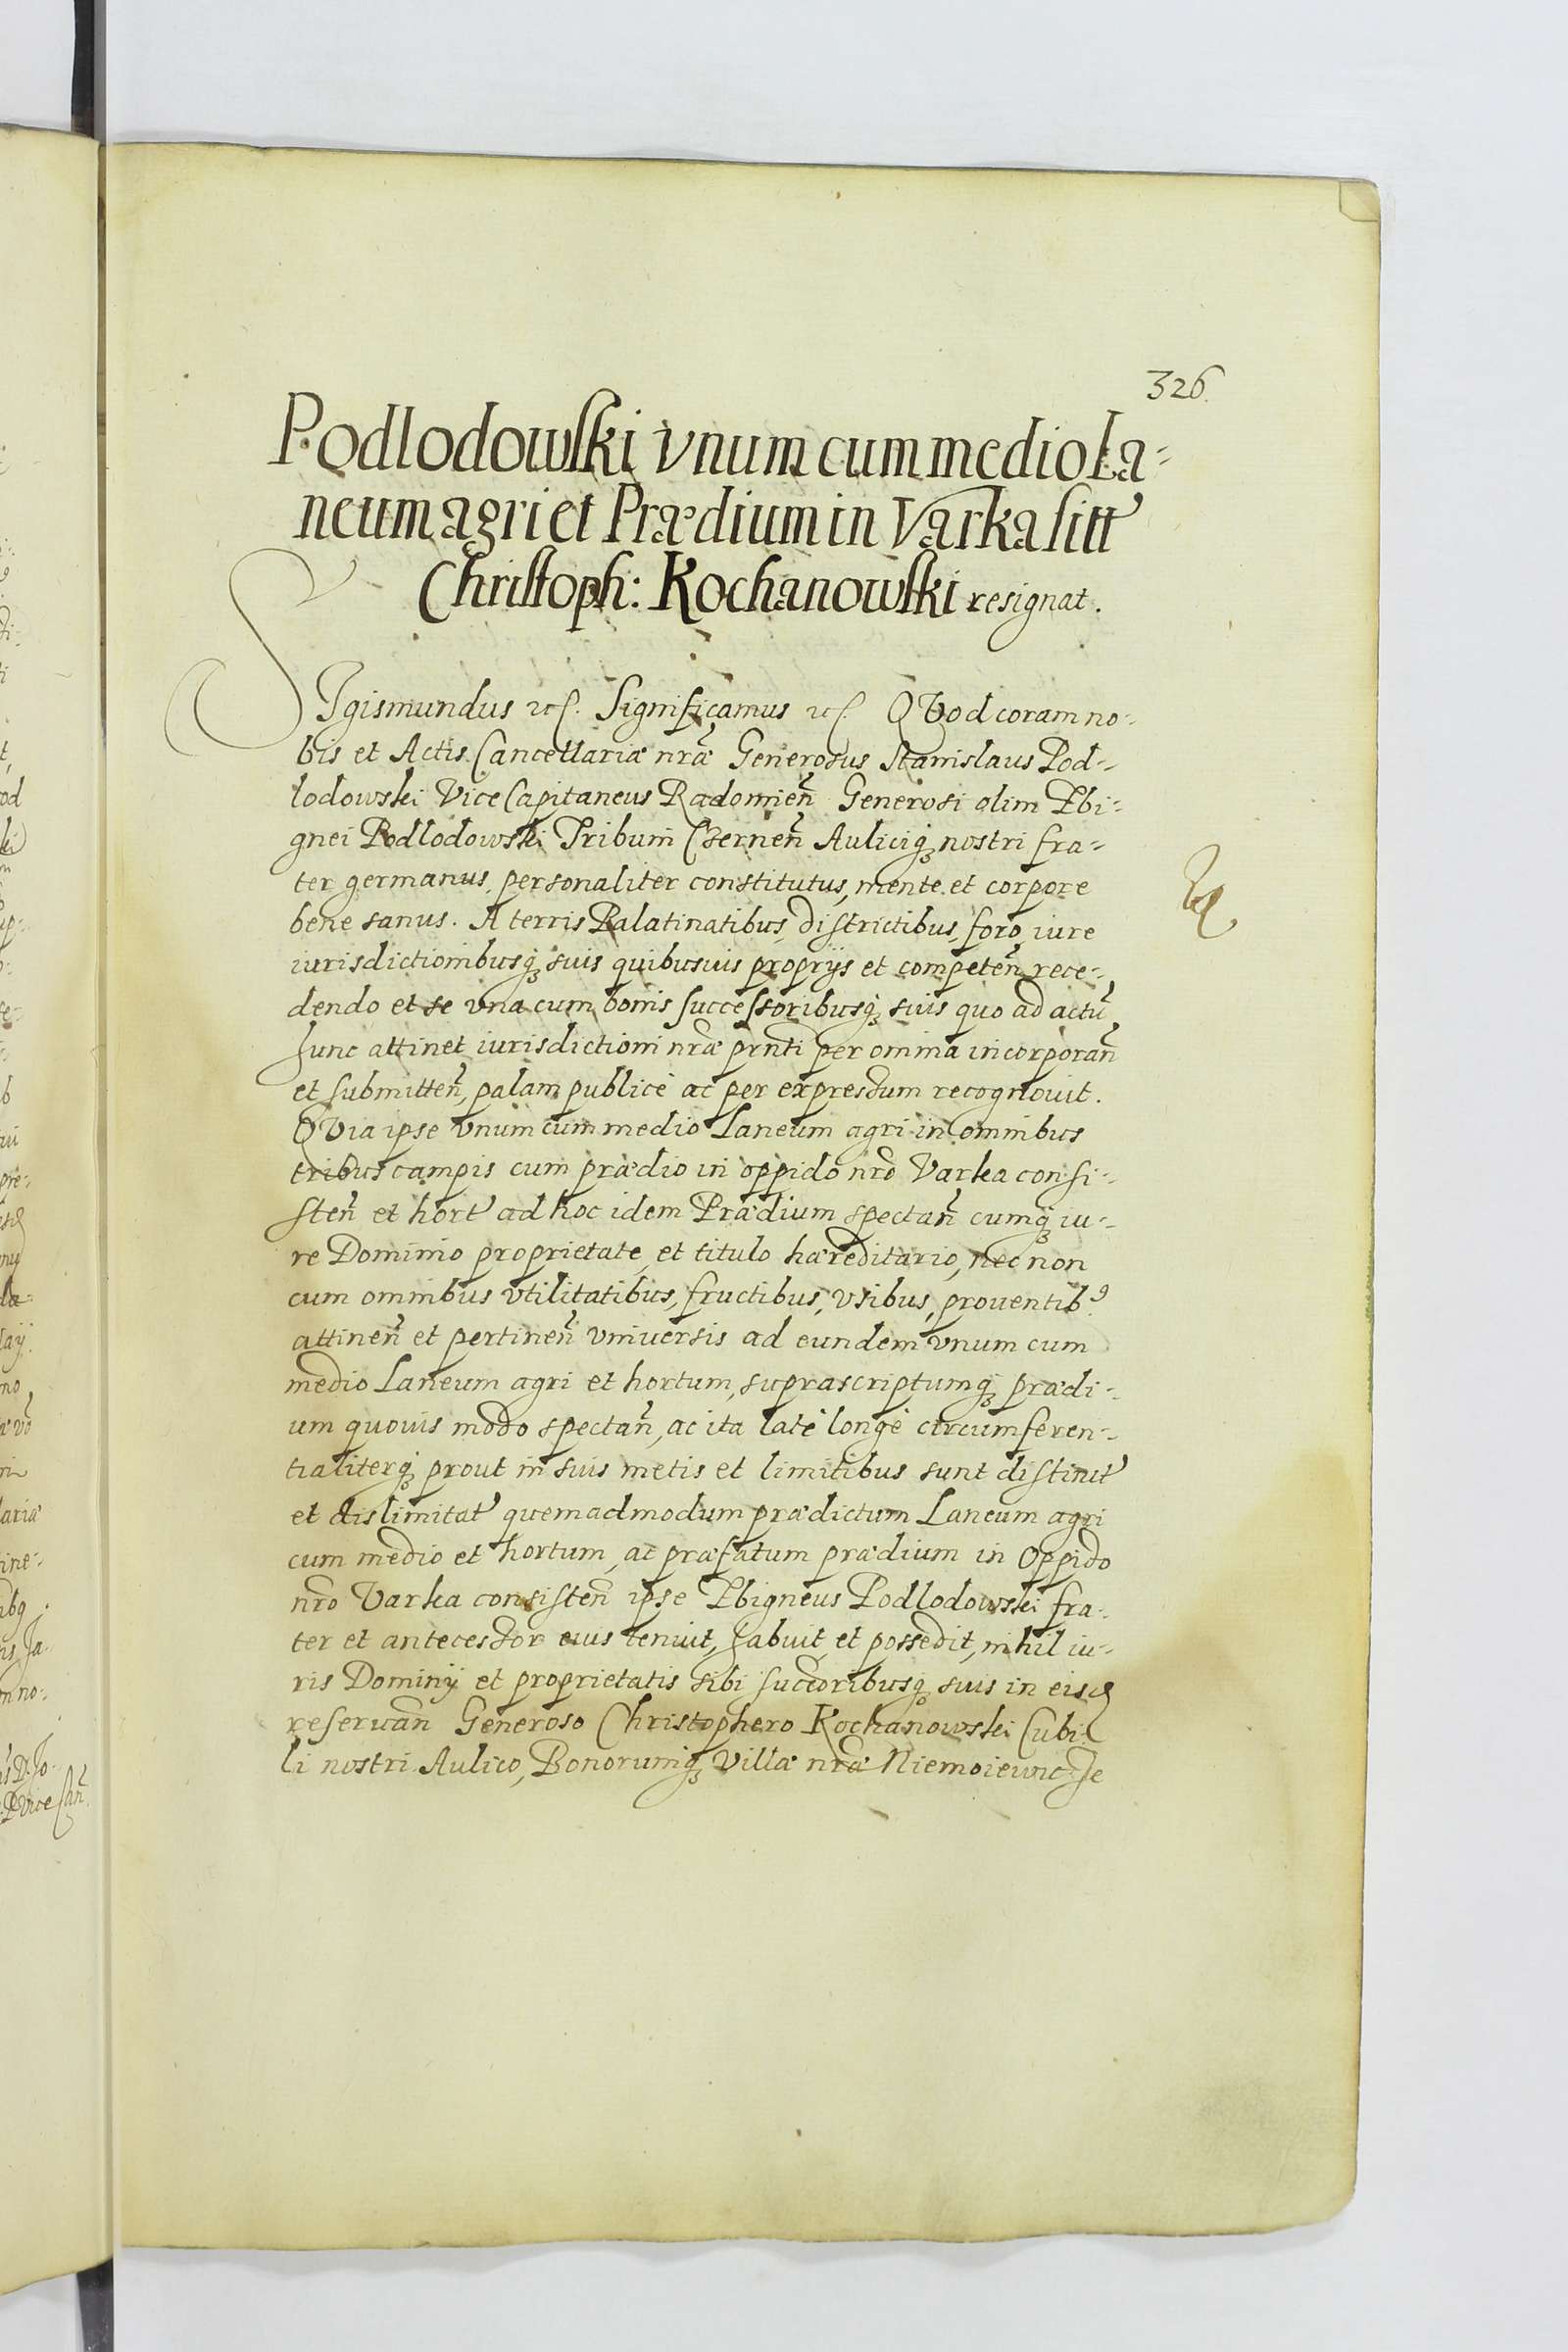 326.
Podlodowski vnum cum medio La=
neum agri et Prædium in Varka sitt
Christoph: Kochanowski resignat.
SIgismundus etc. Significamus etc. QVod coram no-
bis et Actis Cancellariæ nræ Generosus Stanislaus Pod-
lodowski Vice Capitaneus Radomien̄ Generosi olim Zbi-
gnei Podlodowski Tribuni Czernen̄ Auliciq3 nostri fra-
ter germanus, personaliter constitutus, mente et corpore
bene sanus. A terris Palatinatibus, districtibus, foro, iure
iurisdictionibusq3 suis quibusuis proprijs et competen̄ rece-
dendo et se vna cum bonis successoribusq3 suis quo ad actū
hunc attinet iurisdictioni nræ prnti per omnia incorporan̄
et submitten̄, palam publicè ac per expressum recognouit.
QVia ipse vnum cum medio Laneum agri in omnibus
tribus campis cum prædio in oppido nrō Varka consi-
sten̄ et hort ad hoc idem Prædium spectan̄ cumq3 iu-
re Dominio proprietate, et titulo hæreditario, nec non
cum omnibus vtilitatibus, fructibus, vsibus, prouentib9
attinen̄ et pertinen̄ vniuersis ad eundem vnum cum
medio Laneum agri et hortum, suprascriptumq3 prædi-
um quouis modo spectan̄, ac ita latè longè circumferen-
tialiterq3 prout in suis metis et limitibus sunt distinct
et dislimitat quemadmodum prædictum Laneum agri
cum medio et hortum, ac præfatum prædium in Oppido
nro Varka consisten̄ ipse Zbigneus Podlodowski fra-
ter et antecessor eius tenuit, habuit, et possedit, nihil iu-
ris Dominij et proprietatis sibi succoribusq3 suis in eisd
reseruan̄ Generoso Christophero Kochanowski Cubi-
li nostri Aulico, Bonorumq3 Villæ nræ Niemoiewicze